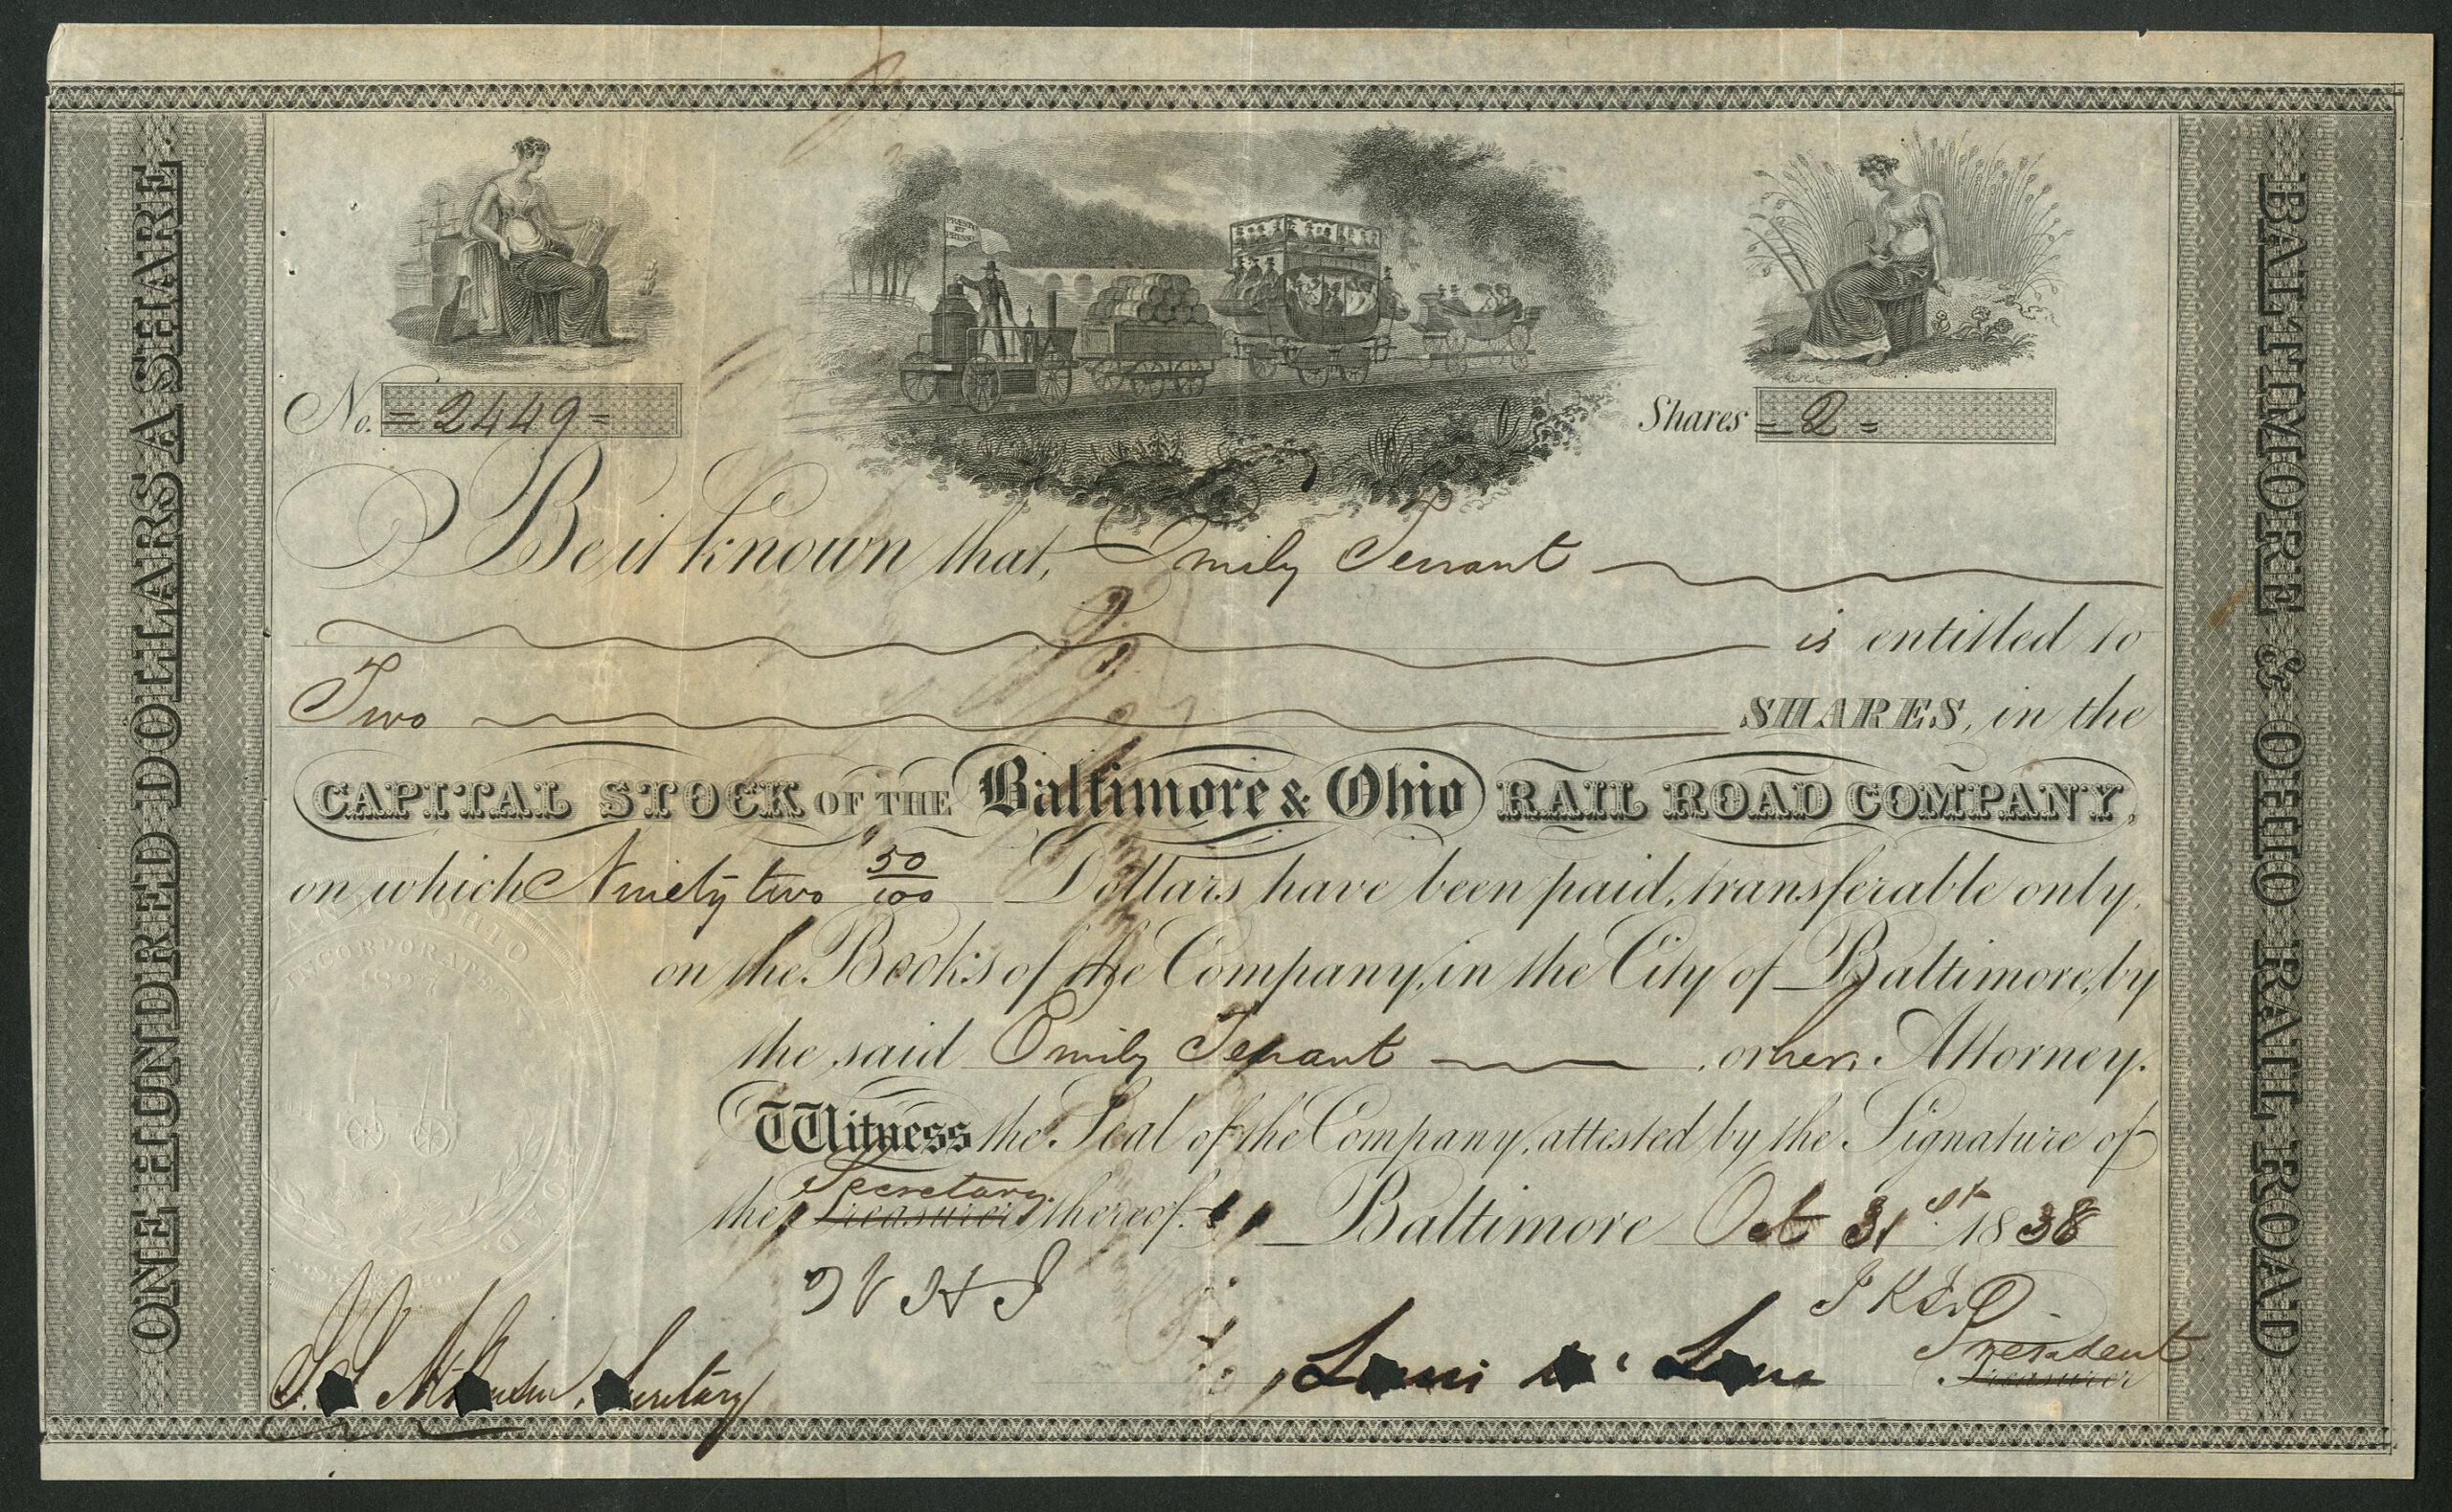 ONE HUNDRED DOLLARS A SHARE
BALTIMORE & OHIO RAIL ROAD
No. = 2449 =
Shares = 2 =
Be it known that, Emily Tenant
is entitled to
Two SHARES, in the
CAPITAL STOCK OF THE Baltimore & Ohio RAIL ROAD COMPANY,
on which Ninety two 50/100 Dollars have been paid, transferable only,
on the Books of the Company, in the City of Baltimore, by
the said Emily Tenant, or her Attorney.
Witness the Seal of the Company, attested by the Signature of
Secretary
the Treasurer thereof. Baltimore Oct 31st 1838
Secretary
Louis McLane
President
Treasurer
OHIO
INCORPORATED